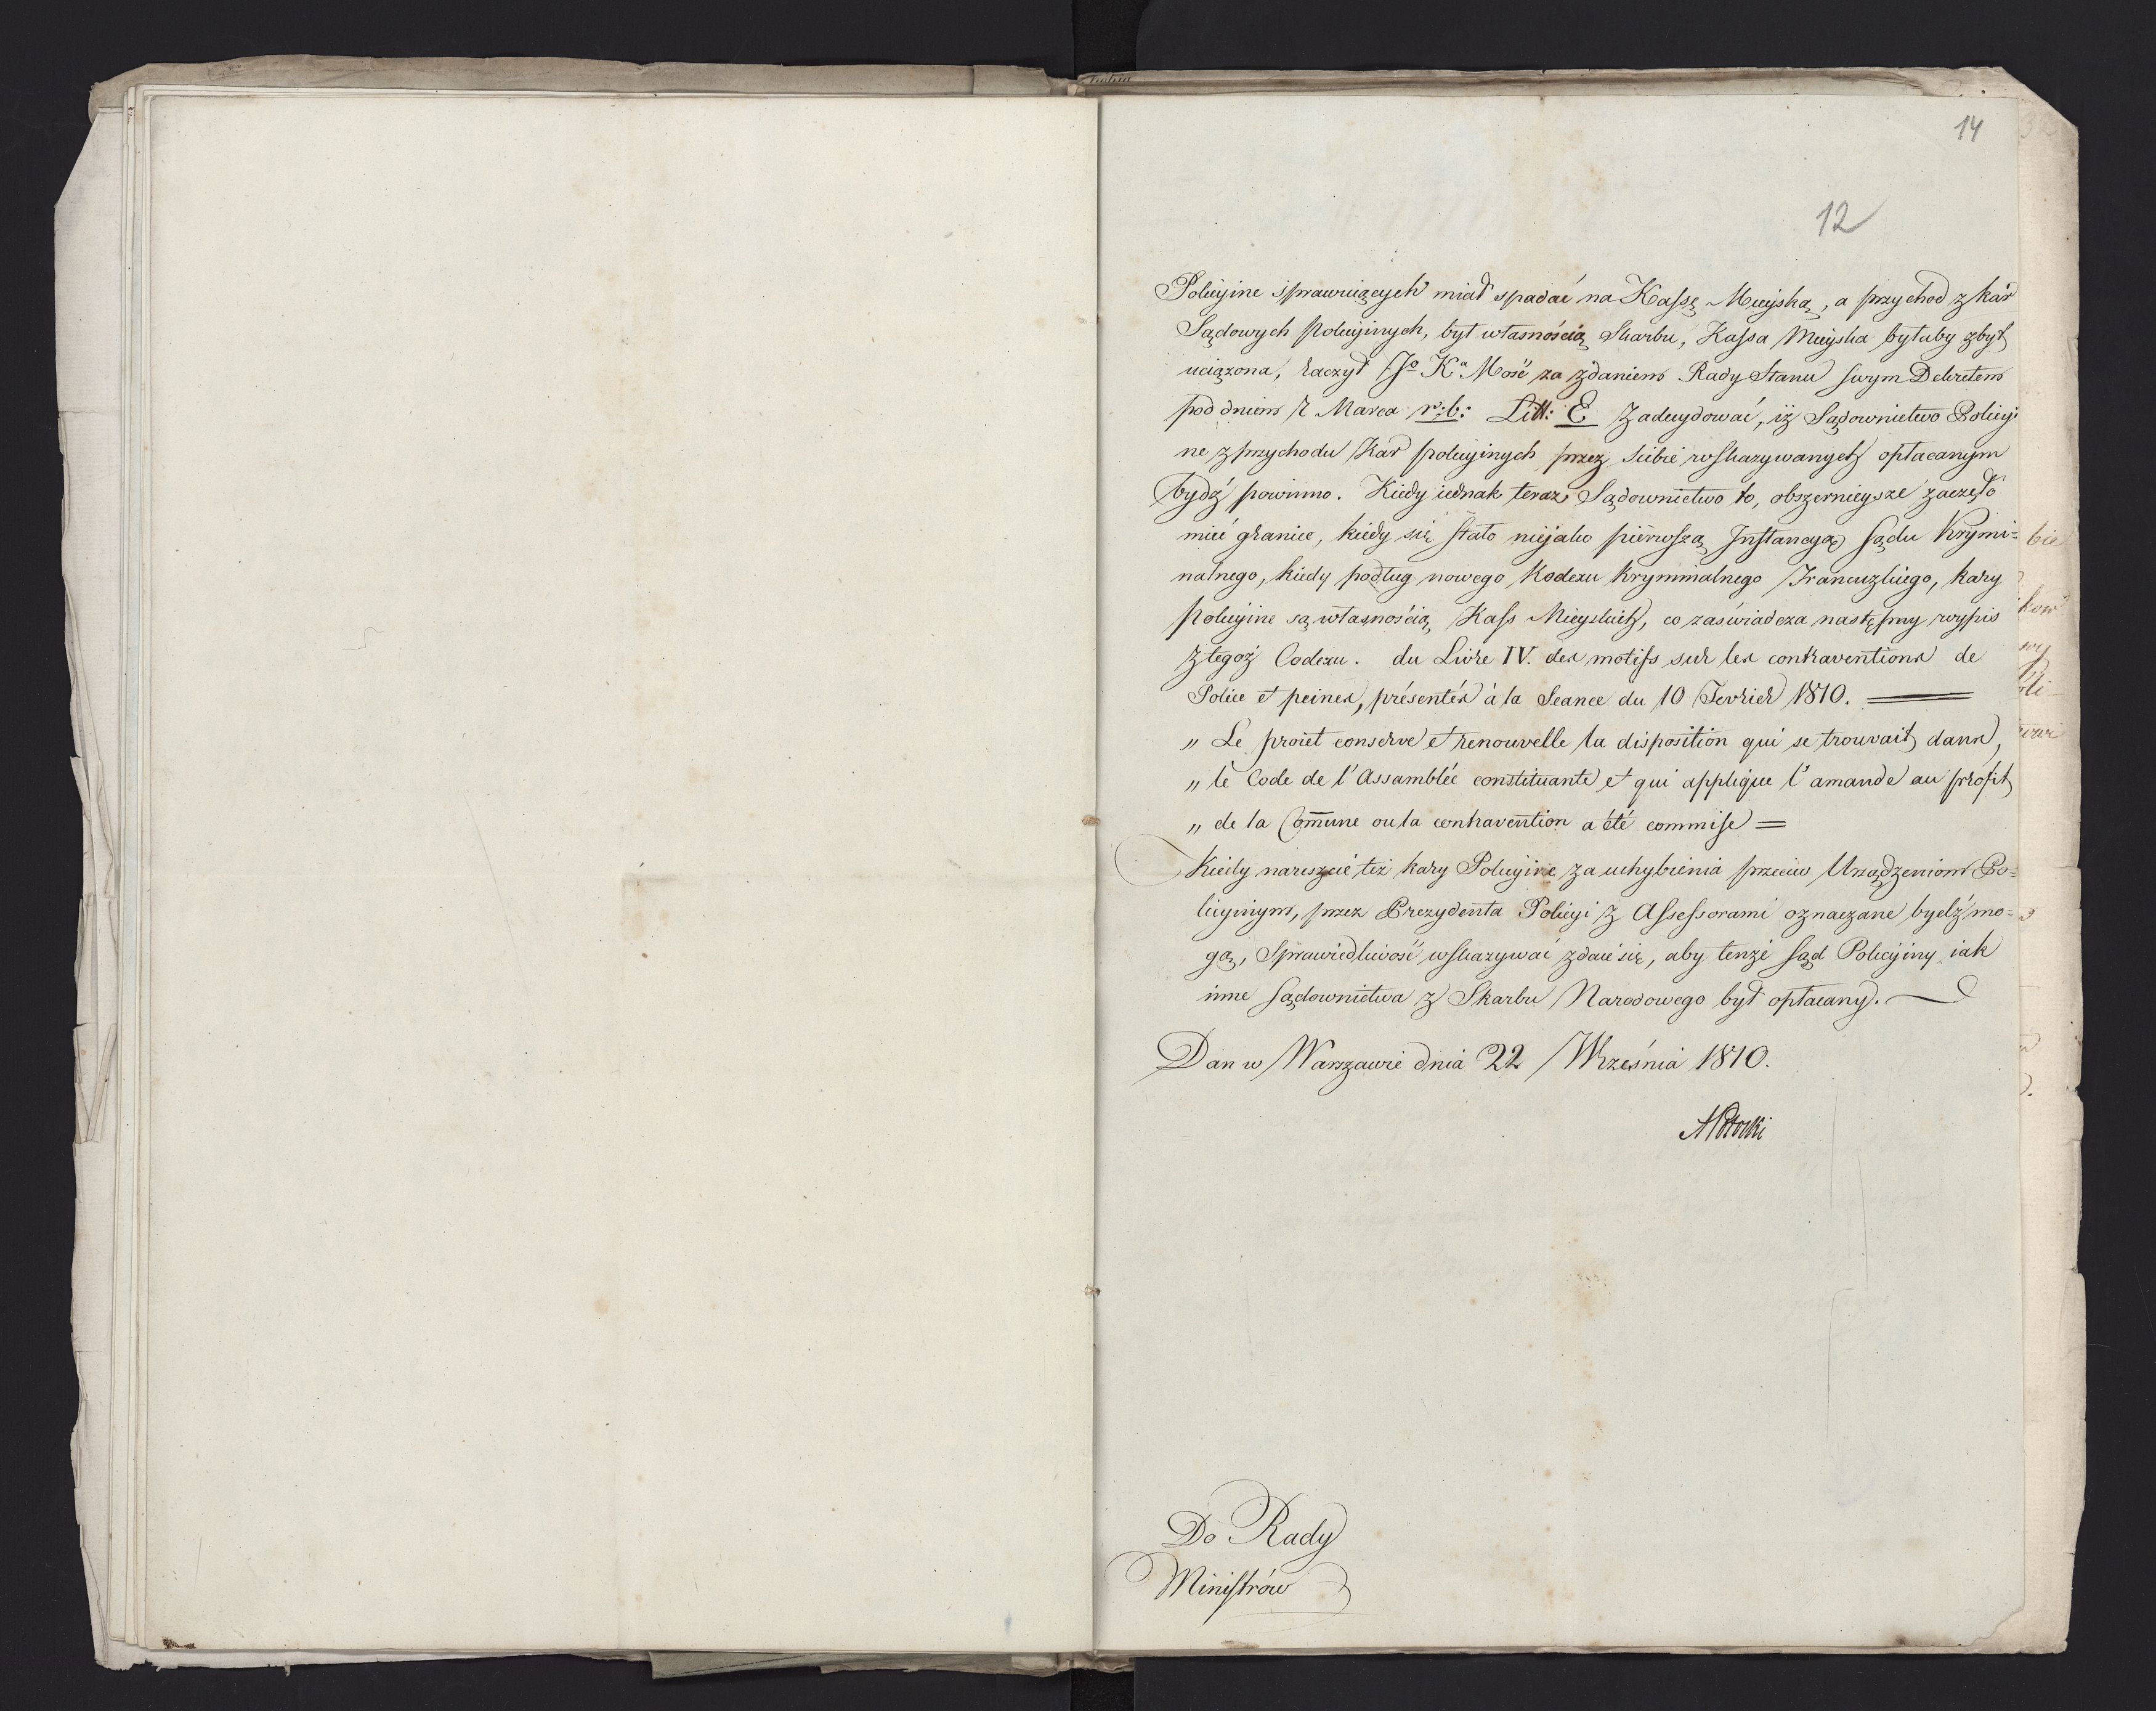 14
12
Policyine sprawuiących miał spadać na Kassę Mieyską, a przychod z kar
Sądowych Policyinych, był własnością Skarbu, Kassa Mieyska byłaby zbyt
uciążona, raczył Jo Ka Mość za zdaniem Rady Stanu swym Dekretem
pod dniem 7 Marca r: b: Litt: E zadecydować, iż Sądownictwo Policyi
ne z przychodu Kar policyinych przez siebie wskazywanych opłacanym
bydź powinno. Kiedy iednak teraz Sądownictwo to, obszernieysze zaczęło
mieć granice, kiedy się stało nieiako pierwszą Instancyą Sądu Krymi=
nalnego, kiedy podług nowego Kodexu kryminalnego Francuzkiego, kary
Policyine są własnością Kass Mieyskich, co zaświadcza następny wypis
z tegoż Codexu. du Livre IV. des motifs sur les contraventions de
Police et peines, présentés à la Seance du 10 Fevrier 1810.
„ Le proiet conserve et renouvelle la disposition qui se trouvait dans,
„ le Code de l'Assamblée constituante et qui applique l'amande au profit
„ de la Com̄une ou la contravention a été commise =
Kiedy nareszcie też kary Policyine za uchybienia przeciw Urządzeniom Po=
licyinym, przez Prezydenta Policyi z Assessorami oznaczane bydź mo=
gą, Sprawiedliwość wskazywać zdaie się, aby tenże Sąd Policyiny iak
inne Sądownictwa z Skarbu Narodowego był opłacany.
Dan w Warszawie dnia 22 Września 1810.
APotocki
Do Rady
Ministrów